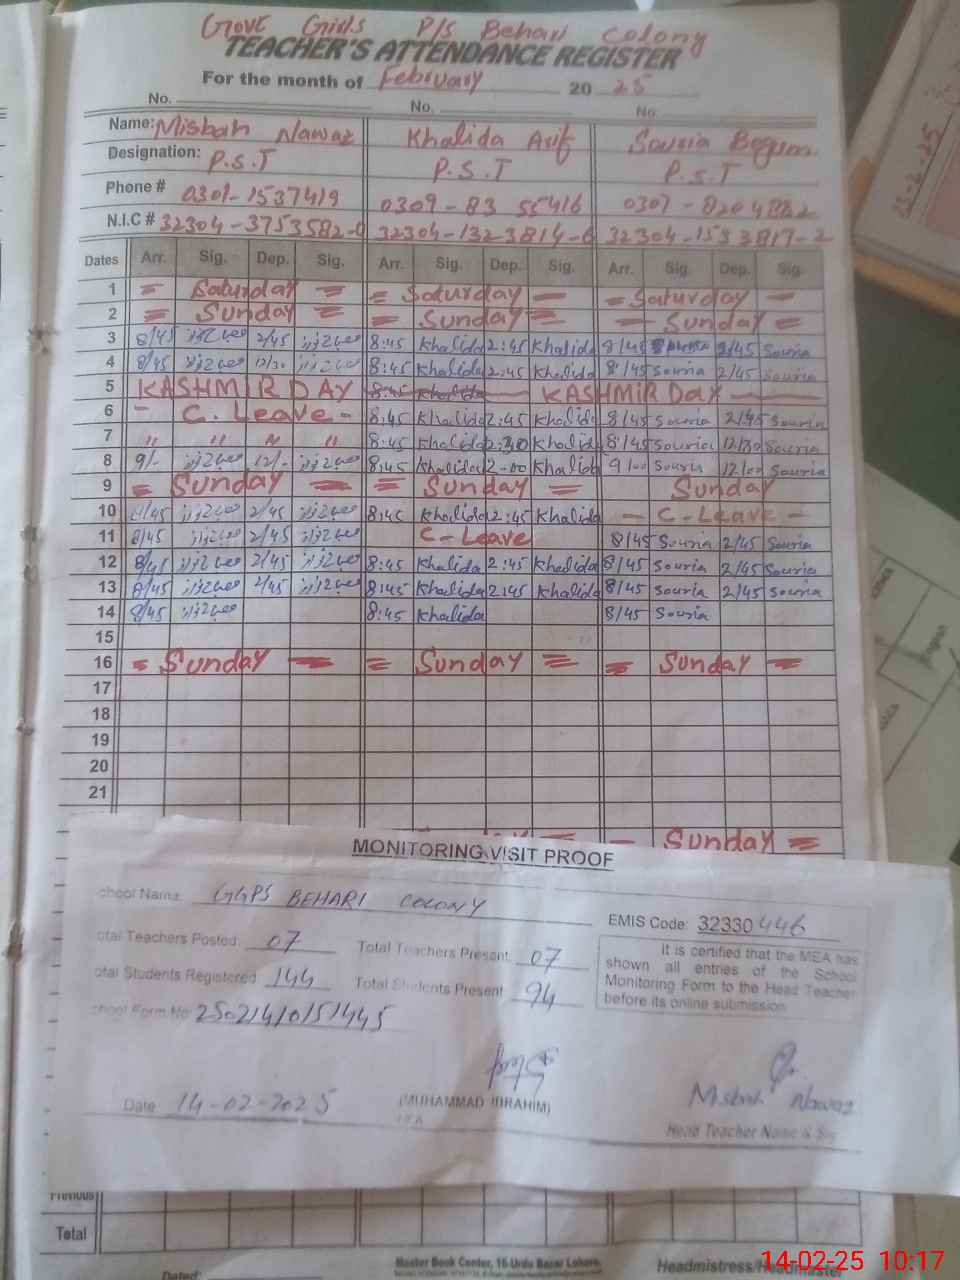 Govt Girls P/S Behari Colony
TEACHER'S ATTENDANCE REGISTER
For the month of February 20 25
No. No. No.
Name: Misbah Nawaz Khalida Arif Souria Begum
Designation: P.S.T P.S.T P.S.T
Phone # 0301-1537419 0309-83 55416
N.I.C # 32304-3753582-0 32304-1323814-6 32304-1553817-2
Dates Arr. Sig. Dep. Sig. Arr. Sig. Dep. Sig. Arr. Sig. Dep. Sig.
1 = Saturday = = Saturday - = Saturday -
2 = Sunday = = Sunday = - Sunday =
3 8/45 2/45 8:45 Khalida 2:45 Khalida 8/45 2/45 Souria
4 8/45 12/30 8:45 Khalida 2:45 Khalida 8/45 Souria 2/45 Souria
5 KASHMIR DAY 8:45 Khalida KASHMIR DAY
6 - C. Leave - 8:45 Khalida 2:45 Khalida 8/45 Souria 2/45 Souria
7 " " " " 8:45 Khalida 2:30 Khalida 8/45 Souria 12/30 Souria
8 9/- 12/- 8:45 Khalida 2-00 Khalida 9/00 Souria 12/00 Souria
9 = Sunday = = Sunday = Sunday
10 8/45 2/45 8:45 Khalida 2:45 Khalida - C-Leave -
11 8/45 2/45 C-Leave 8/45 Souria 2/45 Souria
12 8/45 2/45 8:45 Khalida 2:45 Khalida 8/45 Souria 2/45 Souria
13 8/45 2/45 8:45 Khalida 2:45 Khalida 8/45 Souria 2/45 Souria
14 8/45 8:45 Khalida 8/45 Souria
15
16 = Sunday = = Sunday = = Sunday =
17
18
19
20
21
- Sunday =
MONITORING VISIT PROOF
chool Name: GGPS BEHARI COLONY
EMIS Code: 32330446
otal Teachers Posted: 07 Total Teachers Present: 07
otal Students Registered: 144 Total Students Present: 94
It is certified that the MEA has shown all entries of the School
Monitoring Form to the Head Teacher
before its online submission.
chool Form No: 250214/0151445
Date 14-02-2025
(MUHAMMAD IBRAHIM)
Misbah Nawaz
Head Teacher Name & Sig
Previous
Total
Master Book Center, 16-Urdu Bazar Lahore.
Dated:
Headmistress/Headmaster
13-2-25
14-02-25 10:17